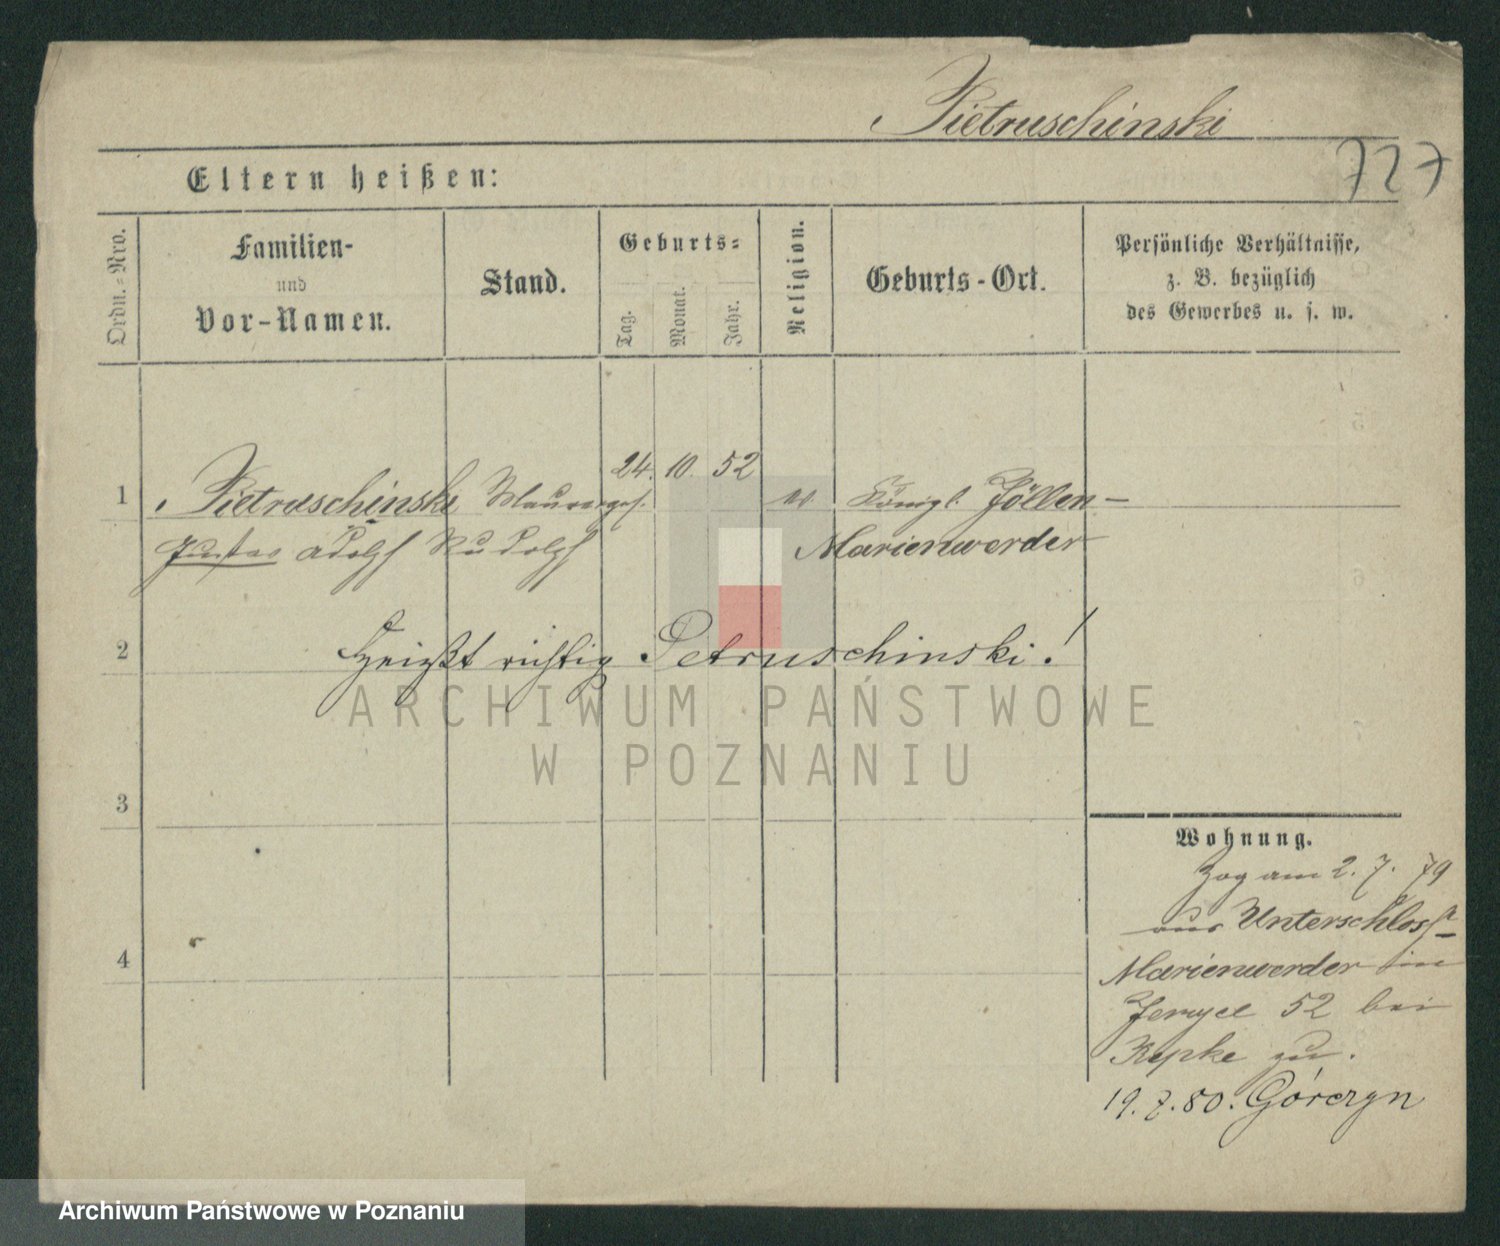 Pietruschinski
727
Eltern heißen:
Ordn.=Nro.
Familien-
und
Vor-Namen.
Stand.
Geburts=
Tag.
Monat.
Jahr.
Religion.
Geburts-Ort.
Persönliche Verhältnisse,
z. B. bezüglich
des Gewerbes u. s. w.
24. 10. 52
1 Pietruschinski Maurerges. Königl. Jöllen-
Gustav Adolf Rudolf Marienwerder
2 Heißt richtig Petruschinski!
ARCHIWUM PAŃSTWOWE
W POZNANIU
3
Wohnung.
Zog am 2. 7. 79
aus Unterschloss
Marienwerder in
4
Jerzyce 52 bei
Repke zu.
19. 7. 80. Górczyn
Archiwum Państwowe w Poznaniu